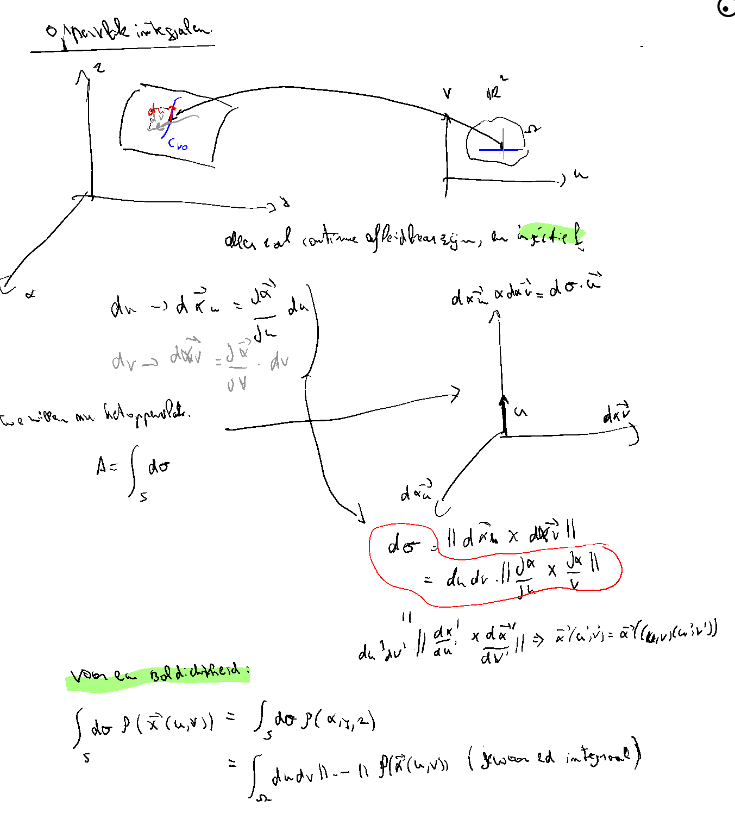 oppervlakteintegralen
z
y
x
du
dv
C_{v_0}
v
ℝ²
Ω
u
alles zal continu afleidbaar zijn, en injectief
du → d\vec{x}_u = \frac{∂\vec{x}}{∂u} du
dv → d\vec{x}_v = \frac{∂\vec{x}}{∂v} · dv
d\vec{x}_u × d\vec{x}_v = dσ · \vec{u}
u
d\vec{x}_v
d\vec{x}_u
we willen nu het oppervlakte.
A = ∫_S dσ
dσ = || d\vec{x}_u × d\vec{x}_v ||
= du dv · || \frac{∂x}{∂u} × \frac{∂x}{∂v} ||
du' dv' || \frac{dx'}{du'} × \frac{d\vec{x}'}{dv'} || ⇒ \vec{x}'(u',v') = \vec{x}((u,v)(u',v'))
voor een
∫_S dσ ρ(\vec{x}(u,v)) = ∫_S dσ ρ(x,y,z)
= ∫_Ω du dv ||--|| ρ(\vec{x}(u,v)) (gewoon 2d integraal)